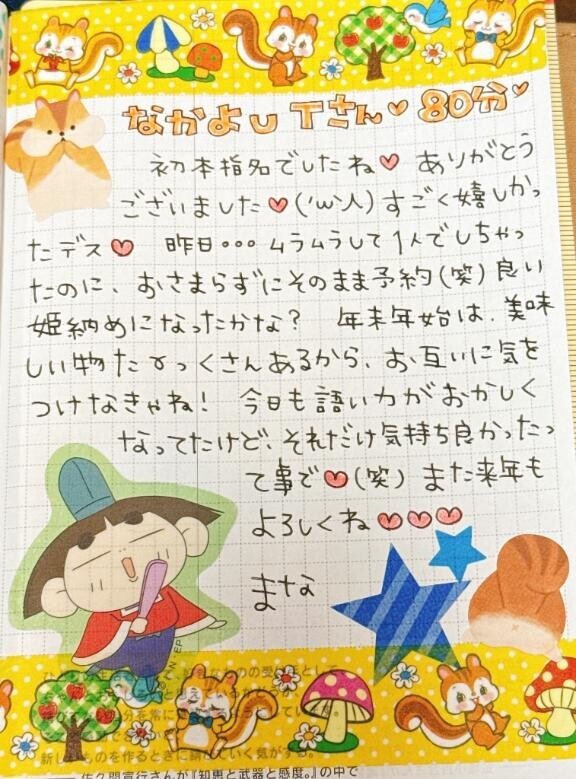 なかよし Tさん♡ 80分♡
初本指名でしたね♡ ありがとう
ございました♡('ω'人)すごく嬉しかっ
たデス♡ 昨日・・・ムラムラして1人でしちゃっ
たのに、おさまらずにそのまま予約(笑)良い
姫納めになったかな? 年末年始は、美味
しい物たくっくさんあるから、お互いに気を
つけなきゃね! 今日も語い力がおかしく
なってたけど、それだけ気持ち良かったっ
て事で♡(笑) また来年も
よろしくね♡♡♡
まな
新し
ものを作るときに
ていく気がする。
佐久間宣行さんが『知恵と武器と感度。』の中で